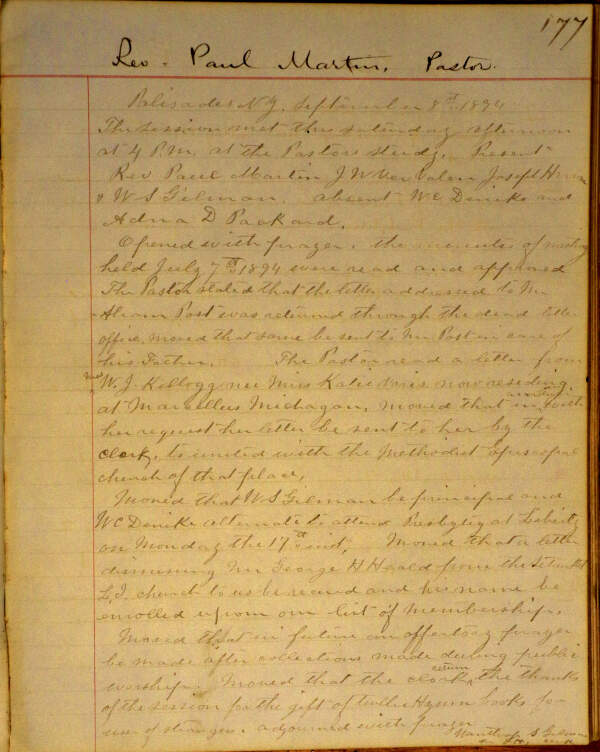 177
Rev. Paul Martin, Pastor.
Palisades N.Y. September 8th 1894
The session met this saturday afternoon
at 4 P.M. at the Pastors study. Present
Rev Paul Martin J W Van Valen Joseph
& W S Gilman. absent W C Denike and
Adna D Packard.
Opened with prayer. the minutes of meeting
held July 7th 1894 were read and approved
The Pastor stated that the letter addressed to Mr
Post was returned through the dead letter
office, moved that same be sent to Mr Post in care of
his Father. The Pastor read a letter from
Mrs W. J. Kellogg nee Miss Katie now residing
at Marcellus Michagan, moved that in with
her request her letter be sent to her by the
clerk, to united with the Methodist episcopal
church of that place.
Moved that W S Gilman be principal and
W C Denike alternate to attend Presbytery at Liberty
on Monday the 17th inst. Moved that a letter
dismissing Mr George H from the Setauket
L.I. church to us be recieved and his name be
enrolled upom our list of membership.
Moved that in future an offertory prayer
be made after collections made during public
worship. Moved that the clerk return the thanks
of the session for the gift of twelve Hymn books for
use of strangers. adjourned with prayer
Winthrop S Gilman